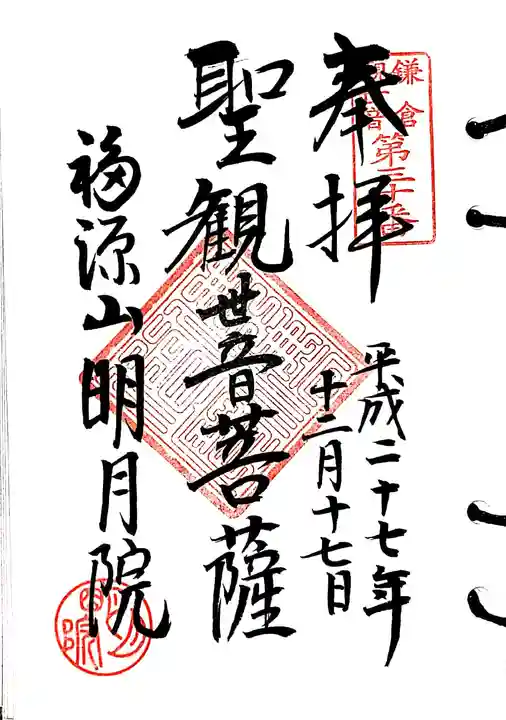 鎌倉
第三十番
奉拝
平成二十七年
十二月十七日
聖観世音菩薩
福源山明月院